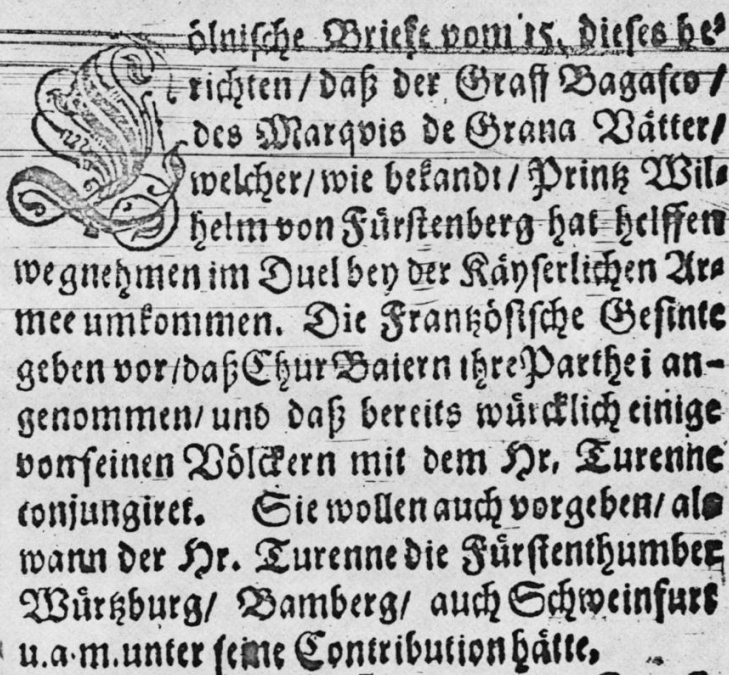 Cölnische Briefe vom 15. dieses be-
richten / daß der Graff Bagasco /
des Marqvis de Grana Vätter /
welcher / wie bekandt / Printz Wil-
helm von Fürstenberg hat helffen
wegnehmen im Duel bey der Käyserlichen Ar-
mee umkommen. Die Frantzösische Gesinte
geben vor / daß Chur Baiern ihre Parthei an-
genommen / und daß bereits würcklich einige
von seinen Völckern mit dem Hr. Turenne
conjungiret. Sie wollen auch vorgeben / als
wann der Hr. Turenne die Fürstenthumber
Würtzburg / Bamberg / auch Schweinfurt
u.a.m. unter seine Contribution hätte.